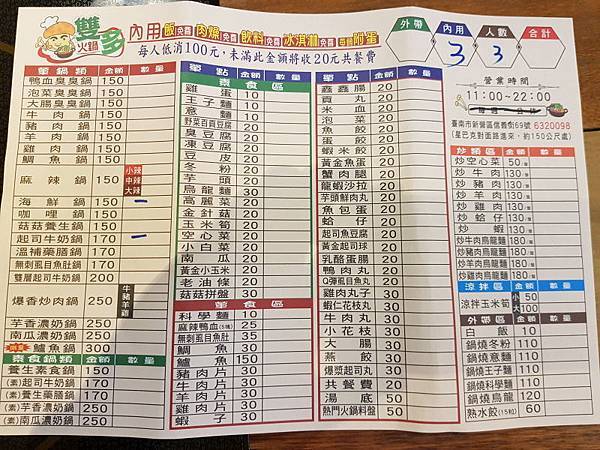 雙多
火鍋
內用飯免費 肉燥免費 飲料免費 冰淇淋免費 每鍋附蛋
每人低消100元,未滿此金額將收20元共餐費
外帶 內用 人數 合計
3 3
營業時間
11:00~22:00
臺南市新營區信義街69號 6320098
(星巴克對面路進來,約150公尺處)
葷鍋類 金額 數量
鴨血臭臭鍋 150
泡菜臭臭鍋 150
大腸臭臭鍋 150
牛肉鍋 150
豬肉鍋 150
羊肉鍋 150
雞肉鍋 150
鯛魚鍋 150
麻辣鍋 150 小辣 中辣 大辣
海鮮鍋 150 一
咖哩鍋 150
菇菇養生鍋 150
起司牛奶鍋 170 一
溫補藥膳鍋 170
無刺虱目魚肚鍋 170
雙層起司牛奶鍋 200
爆香炒肉鍋 250 牛豬羊雞
芋香濃奶鍋 250
南瓜濃奶鍋 250
鱸魚鍋 300
素食鍋類 金額 數量
養生素食鍋 150
(素)起司牛奶鍋 170
(素)養生藥膳鍋 170
(素)芋香濃奶鍋 250
(素)南瓜濃奶鍋 250
單點 金額 數量
素食區
雞蛋 10
王子麵 10
意麵 10
野菜百頁豆腐 20
臭豆腐 20
凍豆腐 20
豆皮 20
冬粉 20
芋頭 20
烏龍麵 30
高麗菜 20
金針菇 20
玉米筍 20
空心菜 20
小白菜 20
南瓜 20
黃金小玉米 20
老油條 20
菇菇拼盤 30
葷食區
科學麵 10
麻辣鴨血(5塊) 25
無刺虱目魚肚 35
鯛魚 30
鱸魚 150
豬肉片 30
牛肉片 30
羊肉片 30
雞肉片 30
蝦子 30
單點 金額 數量
鑫鑫腸 20
貢丸 20
米血 20
泡菜 20
魚餃 20
蛋餃 20
蝦米餃 20
黃金魚蛋 20
蟹肉腿 20
龍蝦沙拉 20
芋頭鮮肉丸 20
魚包蛋 20
蛤仔 20
起司魚豆腐 20
黃金起司球 20
乳酪蛋腸 20
鴨肉丸 20
Q彈虱目魚丸 20
雞肉丸子 30
蝦仁花枝丸 30
牛肉丸 30
小花枝 30
大腸 30
燕餃 30
爆漿起司丸 30
共餐費 20
湯底 50
熱門火鍋料盤 50
炒類區 金額 數量
炒空心菜 50/盤
炒牛肉 130/盤
炒豬肉 130/盤
炒羊肉 130/盤
炒雞肉 130/盤
炒蛤仔 130/盤
炒蝦 130/盤
炒牛肉烏龍麵 180/盤
炒豬肉烏龍麵 180/盤
炒羊肉烏龍麵 180/盤
炒雞肉烏龍麵 180/盤
涼拌區 金額 數量
涼拌玉米筍 小 50
大 100
外帶區 金額 數量
白飯 10
鍋燒冬粉 110
鍋燒意麵 110
鍋燒王子麵 110
鍋燒科學麵 110
鍋燒烏龍 120
熟水餃(15粒) 60